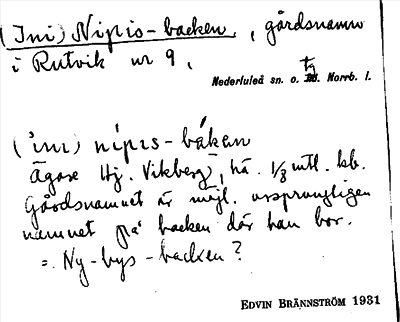 (Ini) Nipis-backen, gårdsnamn
i Rutvik nr 9,
Nederluleå sn. o. tg Norrb. l.
(ˈini) nípis-báken
Ägare Hj. Vikberg, hä. 1/8 mtl. kb.
Gårdsnamnet är möjl. ursprungligen
namnet på backen där han bor.
= Ny-bys-backen?
EDVIN BRÄNNSTRÖM 1931